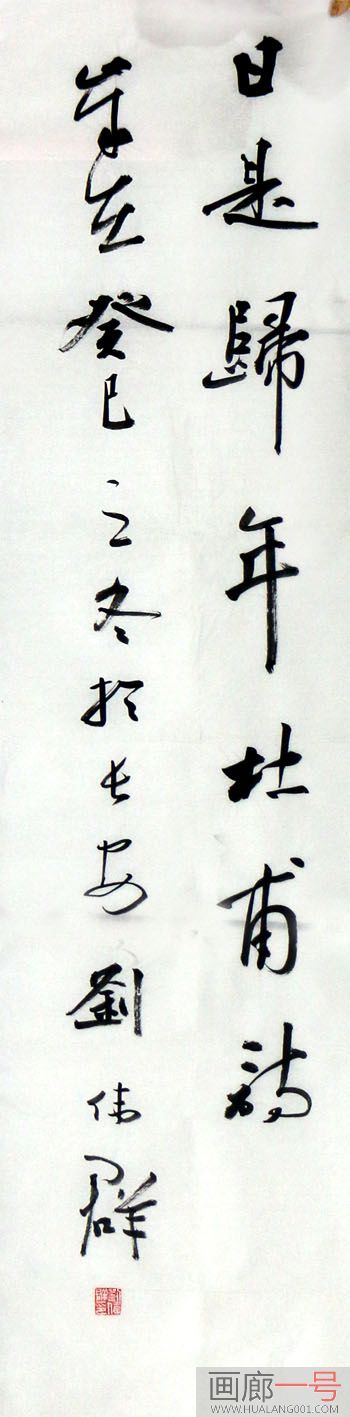 日是歸年杜甫詩
岁在癸巳之冬於长安劉伟群
画廊一号
WWW.HUALANG001.COM